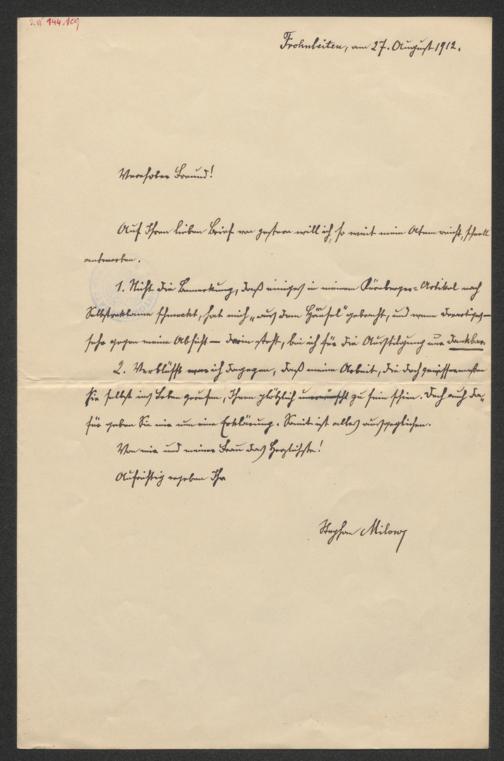 I.N 144.169
Frohnleiten, am 27. August 1912.
Verehrter Freund!
Auf Ihren lieben Brief von gestern will ich, so weit mein Atem reicht, schnell
antworten.
1. Nicht die Bemerkung, daß einiges in meinem Kürnberger-Artikel nach
Selbstreklame schmeckt, hat mich „aus dem Häusel" gebracht, und wenn derartiges –
sehr gegen meine Absicht – darin steht, bin ich für die Ausstilgung nur dankbar.
2. Verblüfft war ich dagegen, daß meine Arbeit, die doch gewissermaßen
Sie selbst ins Leben gerufen, Ihnen plötzlich unerwünscht zu sein schien. Doch auch da-
für gaben Sie mir nun eine Erklärung. Somit ist alles ausgeglichen.
Von mir und meiner Frau das Herzlichste!
Aufrichtig ergeben Ihr
Stephan Milow